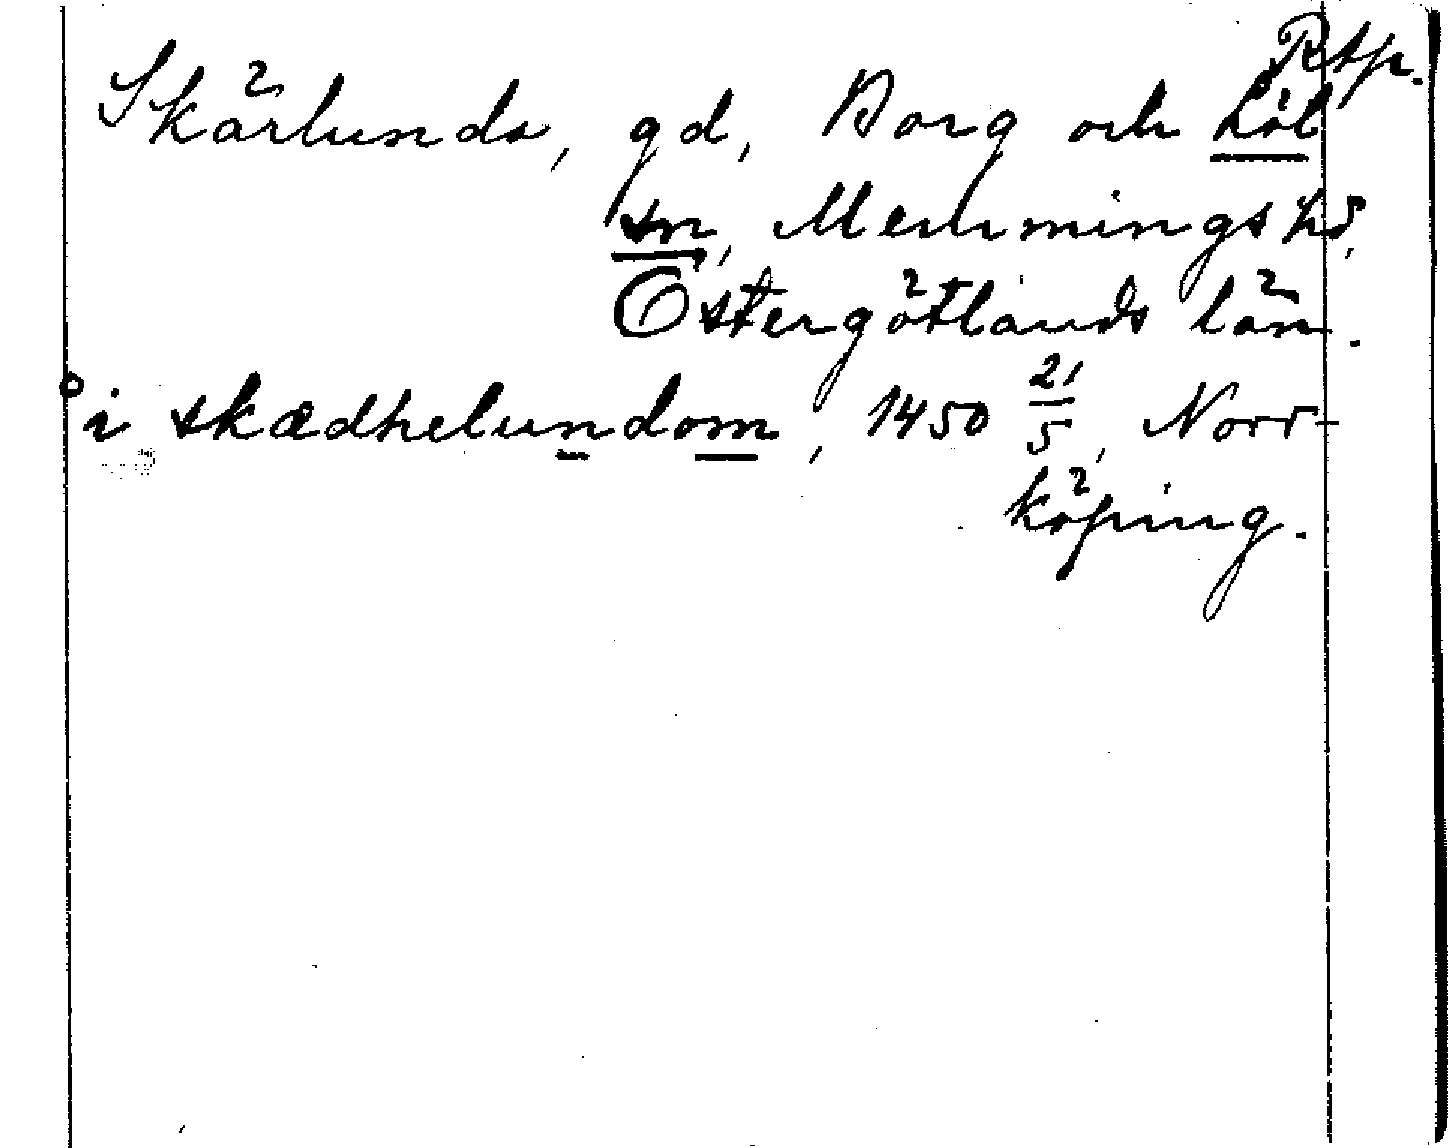 Rtp.
Skärlunda, gd, Borg och Löt
sn, Memmings hd,
Östergötlands län.
i skædhelundom, 1450 21/5, Norr-
köping.